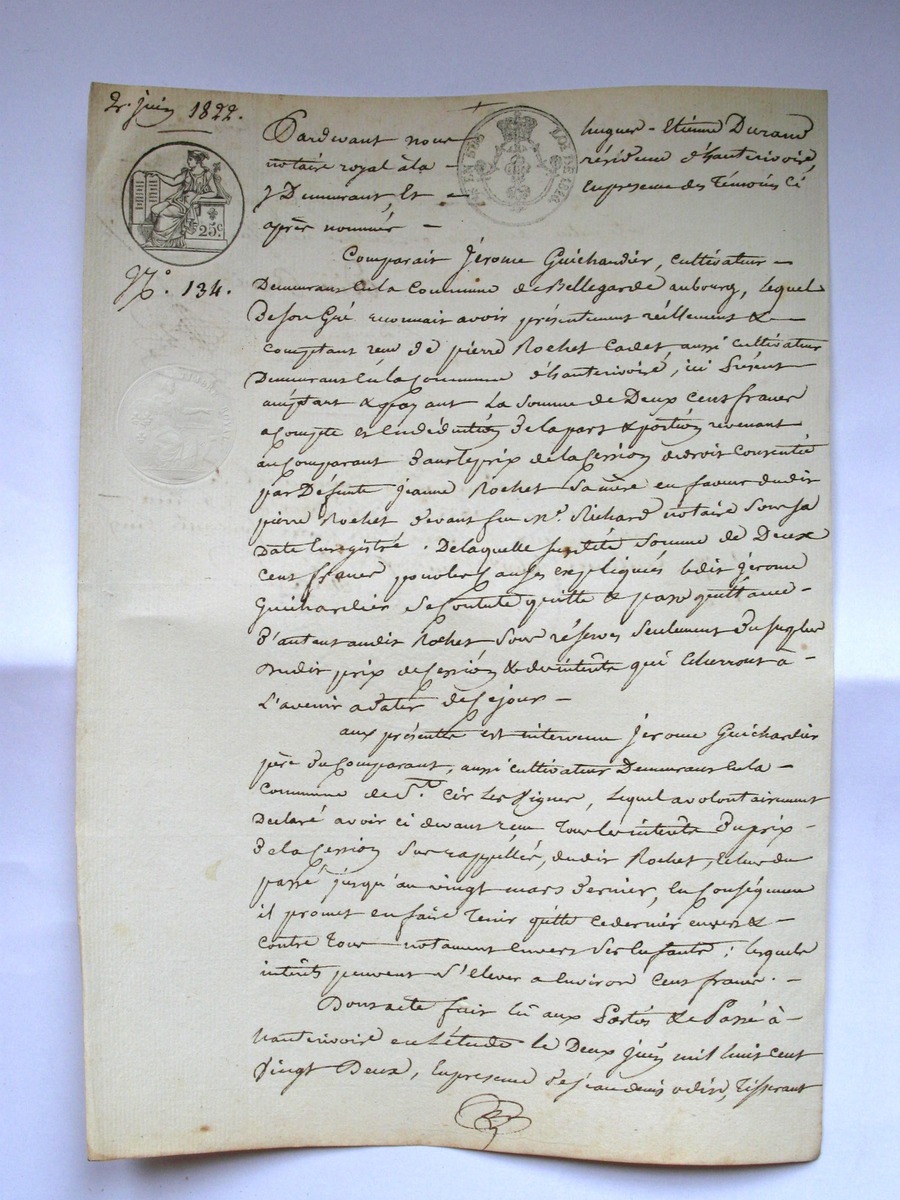 2. juin 1822.
25c
N.o 134.
TIMBRE ROYAL
EN SUS
LOI DE 1816
Pardevant nous hugues - Etienne Durand
notaire royal à la résidence d'hauterivoire,
y Demeurant, Et en presence des Témoins ci
après nommés -
Comparait Jérome Guichardier, cultivateur -
Demeurant en la Commune de Bellegarde aubourg, lequel
De son Gré reconnait avoir présentement réellement &
comptant reçu de pierre Rochet Cadet aussi cultivateur
Demeurant En la Commune d'hauterivoire, ici Présent
acceptant & payant La Somme de Deux Cent francs
a Compte et En déduction de la part & portion revenant
au Comparant Dans le prix de la Cession de droit Consentie
par Défunte Jeanne Rochet Sa mère en faveur dudit
pierre Rochet devant feu M.e Richard notaire Sous Sa
Date Enregistré. De laquelle susditte Somme de Deux
Cent francs pour les Causes expliquées ledit Jérome
Guichardier Se Contente quitte & passe quittance -
D'autant audit Rochet Sous réserves Seulement du surplus
Dudit prix de Cession & des intérêts qui Echerront à -
L'avenir a dater de Ce jour -
aux présentes est intervenu Jérome Guichardier
père du Comparant, aussi cultivateur Demeurant En la -
Commune de St. Cir Les Vignes, lequel a volontairement
Declaré avoir ci devant reçu Tous les intérêts Du prix -
De la Cession Sus rappellée, dudit Rochet, Echus du
passé jusqu'au vingt mars Dernier, En Conséquence
il promet en faire Tenir quitte ce dernier envers &
contre Tous notament Envers Ses Enfants ; lesquels
intérêts peuvent S'Elever a Environ Cent francs. -
Dont acte fait lû aux Parties & Passé à -
hauterivoire en L'étude le Deux juin mil huit cent
Vingt Deux, En presence de jean denis Tisserant